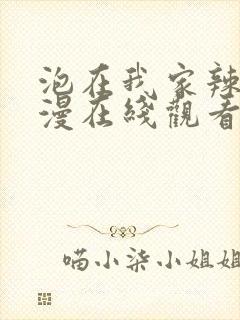 泡在我家辣
漫在綫觀看
喵小柒小姐姐